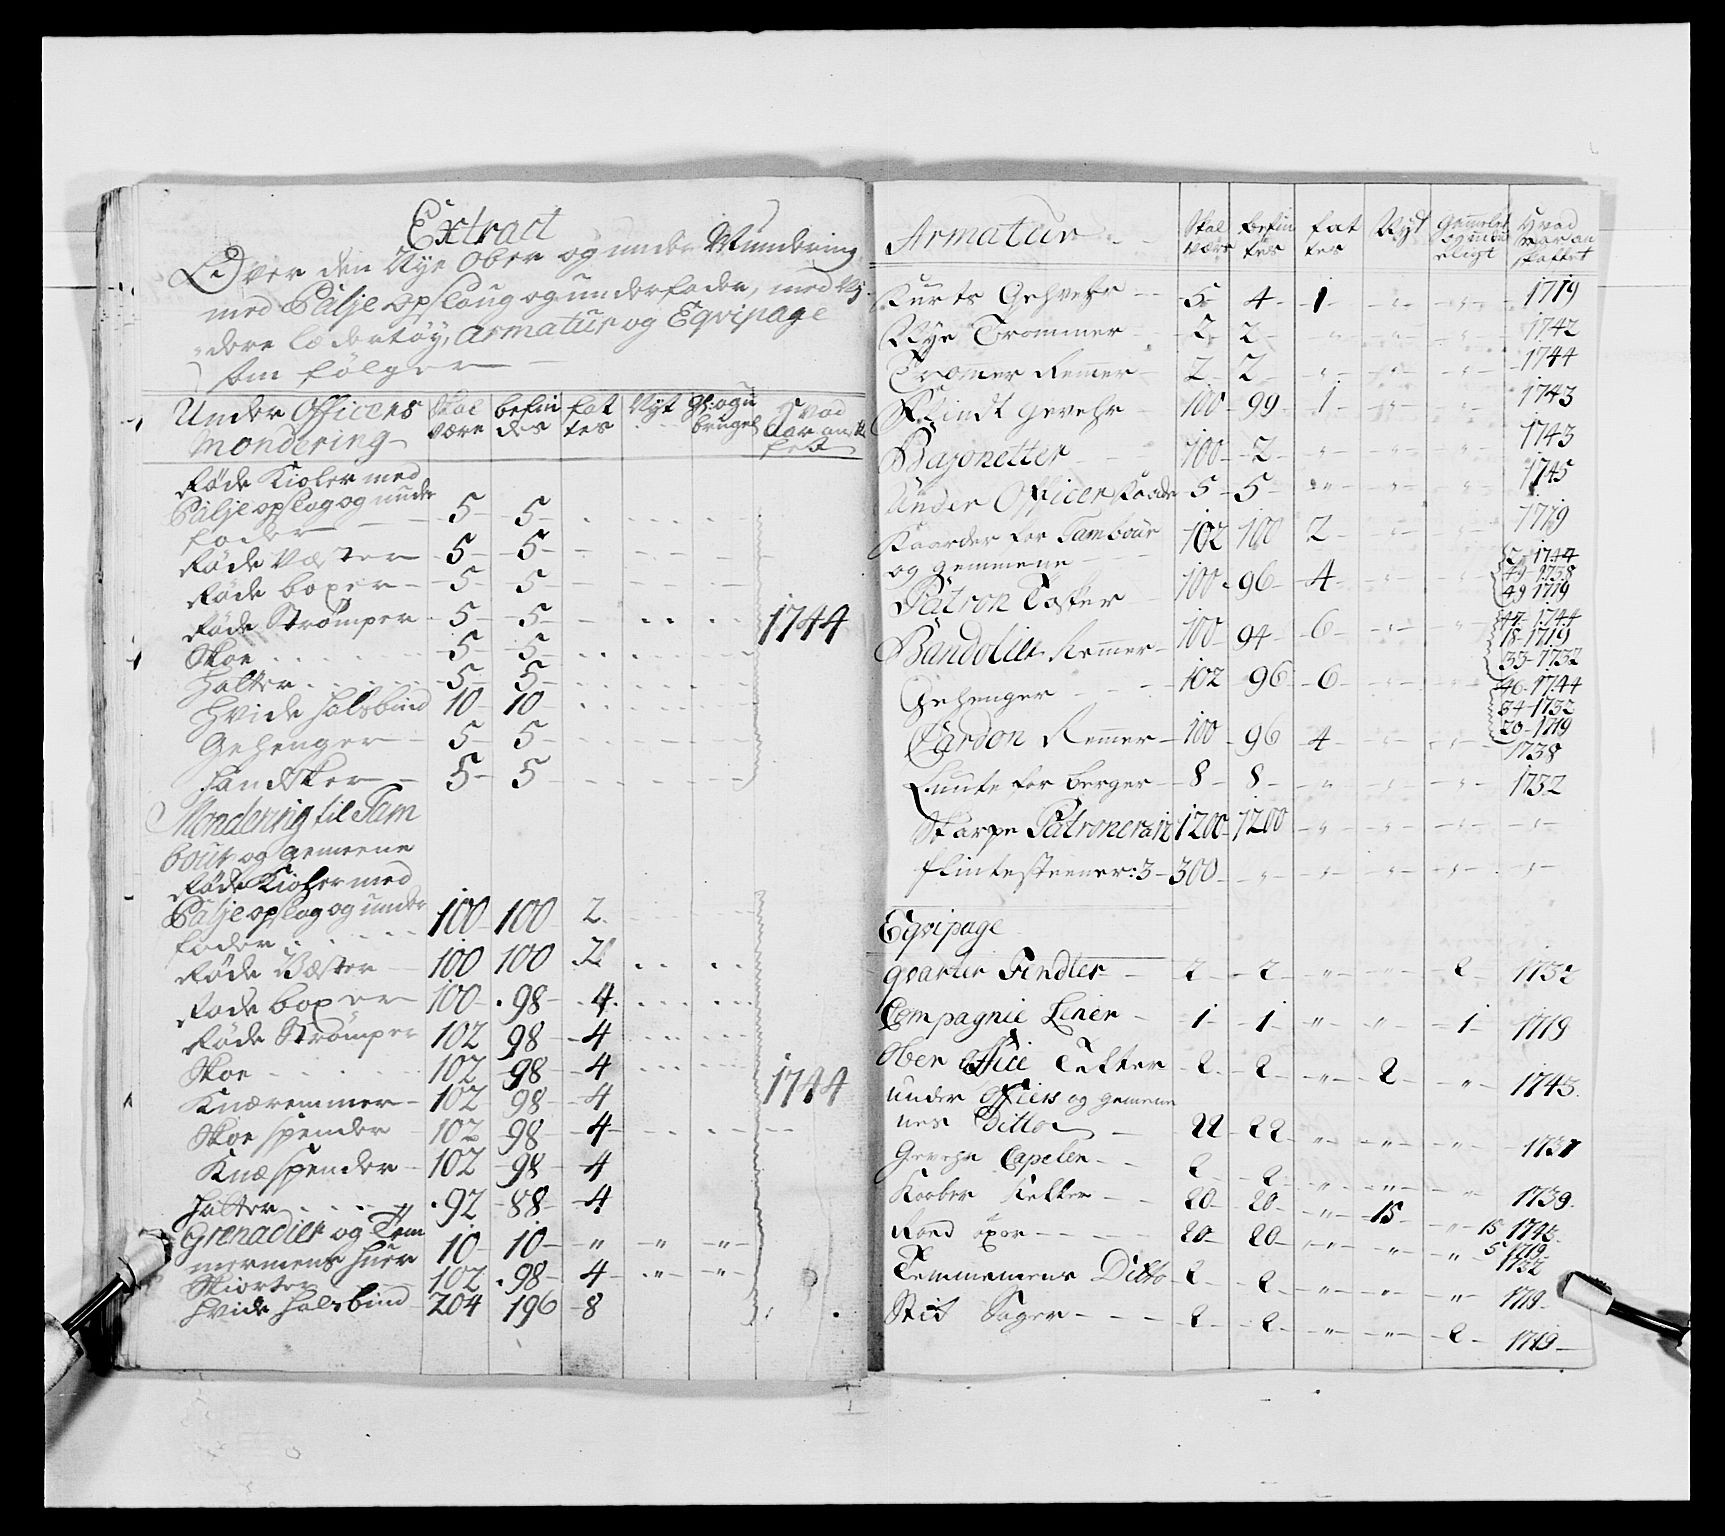 Extract
Over den Nye Ober og under Mundering
med Palje opslaug og underfoder, med Vi¬
dere Lædertøy, Armatur og Eqvipage
som følger
Under Officers Skal befin fat Nyt gl: og u Hvad
Mondering være des tes brugel Aar
Røde Kioler med
Palje opslag og under
foder 5 5
Røde Væster 5 5
Røde boxer 5 5
Røde Strømper 5 5 1744
Skoe 5 5
Hatter 5 5
Hvide Halsbind 10 10
Gehenger 5 5
Handsker 5 5
Mondering til Tam
bour og gemeene
Røde Kioler med
Palje opslag og under
foder 100 100 2
Røde Væster 100 100 2
Røde boxer 100 98 4
Røde Strømper 102 98 4
Skoe 102 98 4 1744
Knæremmer 102 98 4
Skoe spender 102 98 4
Knæspender 102 98 4
Hatter 92 88 4
Grenadier og Tem
mermens huer 10 10 " " "
Skiorter 102 98 4 " "
Hvide Halsbind 204 196 8
Armatur Skal befin fat Nyt Gammelt Hvad
være des tes og ubru Aar an
eligt skaffet
Kurts Gehvehr 5 4 1 1719
Nye Trommer 2 2 1742
Tromer Remer 2 2 1744
Flindt gevehr 100 99 1 1743
Bajonetter 100 2 1743
Under Officer Kaarder 5 5 1745
Kaarder for Tambour 102 100 2 1719
og gemmene
Patron Tasker 100 96 4 2 1744
49 1738
49 1719
Bandolier Remmer 100 94 6 47 1744
18 1719
33 1732
Gehenger 102 96 6 46 1744
34 1732
20 1719
Cardon Remer 100 96 4 1738
Lunte for berger 8 8 1732
Skarpe Patroner 1200 1200
flintesteener: 3 300
Eqvipage
qvarter Findler 2 2 " " 2 1732
Compagnie Linen 1 1 " " 1 1719
Ober Office Telter 2 2 " 2 " 1743
under officers og gemene
nes Ditto 22 22 " " " 1737
Gevehr Capeler 2 2 " " " 1739
Kaaber Kekker 20 20 " 15 " 15 1742
5 1719
Rond öxer 20 20 " " " 1732
Temmemens Ditto 2 2 " " " 1719
Stik Sager 2 2 " " 2 1719